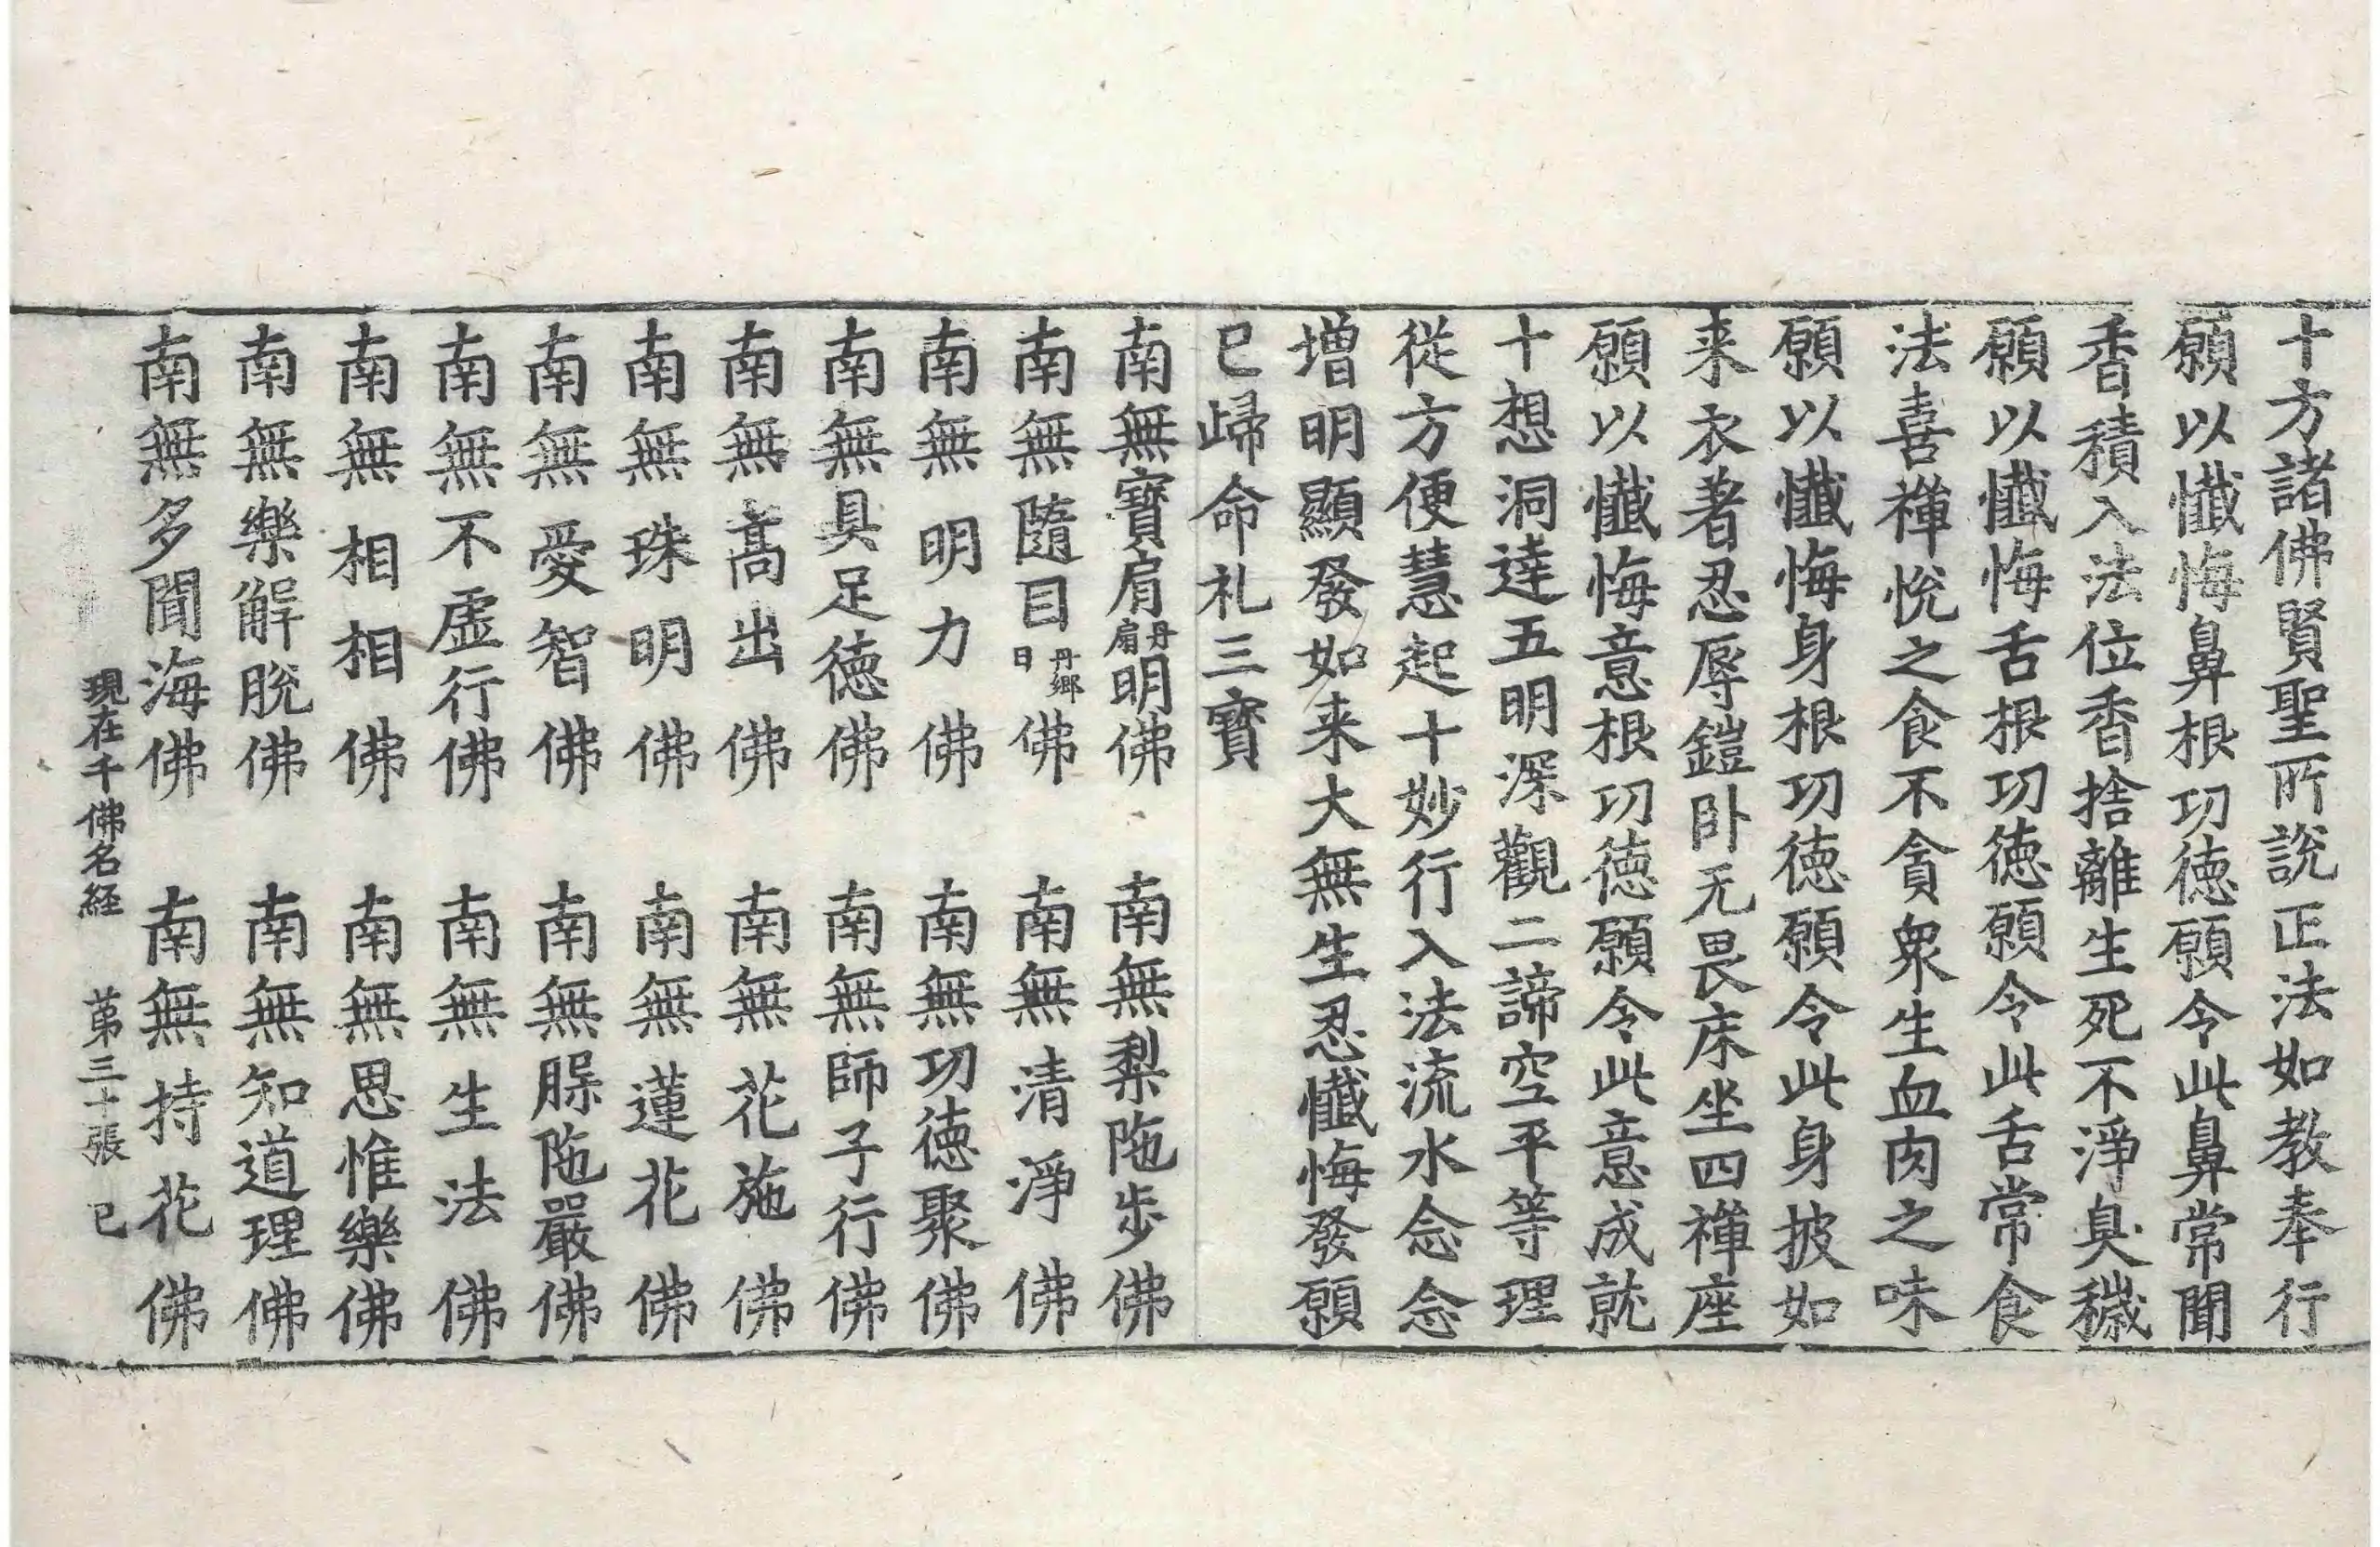 十方諸佛賢聖所說正法如教奉行
願以懺悔鼻根功德願令此鼻常聞
香積入法位香捨離生死不淨臭穢
願以懺悔舌根功德願令此舌常食
法喜禪悅之食不貪衆生血肉之味
願以懺悔身根功德願令此身披如
来衣著忍辱鎧卧无畏床坐四禪座
願以懺悔意根功德願令此意成就
十想洞達五明深觀二諦空平等理
從方便慧起十妙行入法流水念念
增明顯發如来大無生忍懺悔發願
已歸命礼三寶
南無寶肩丹扇明佛 南無梨陁步佛
南無隨目丹鄉日佛 南無清淨佛
南無明力佛 南無功德聚佛
南無具足德佛 南無師子行佛
南無髙出佛 南無花施佛
南無珠明佛 南無蓮花佛
南無愛智佛 南無䐗陁嚴佛
南無不虛行佛 南無生法佛
南無相相佛 南無思惟樂佛
南無樂解脫佛 南無知道理佛
南無多聞海佛 南無持花佛
現在千佛名経 苐三十張 已